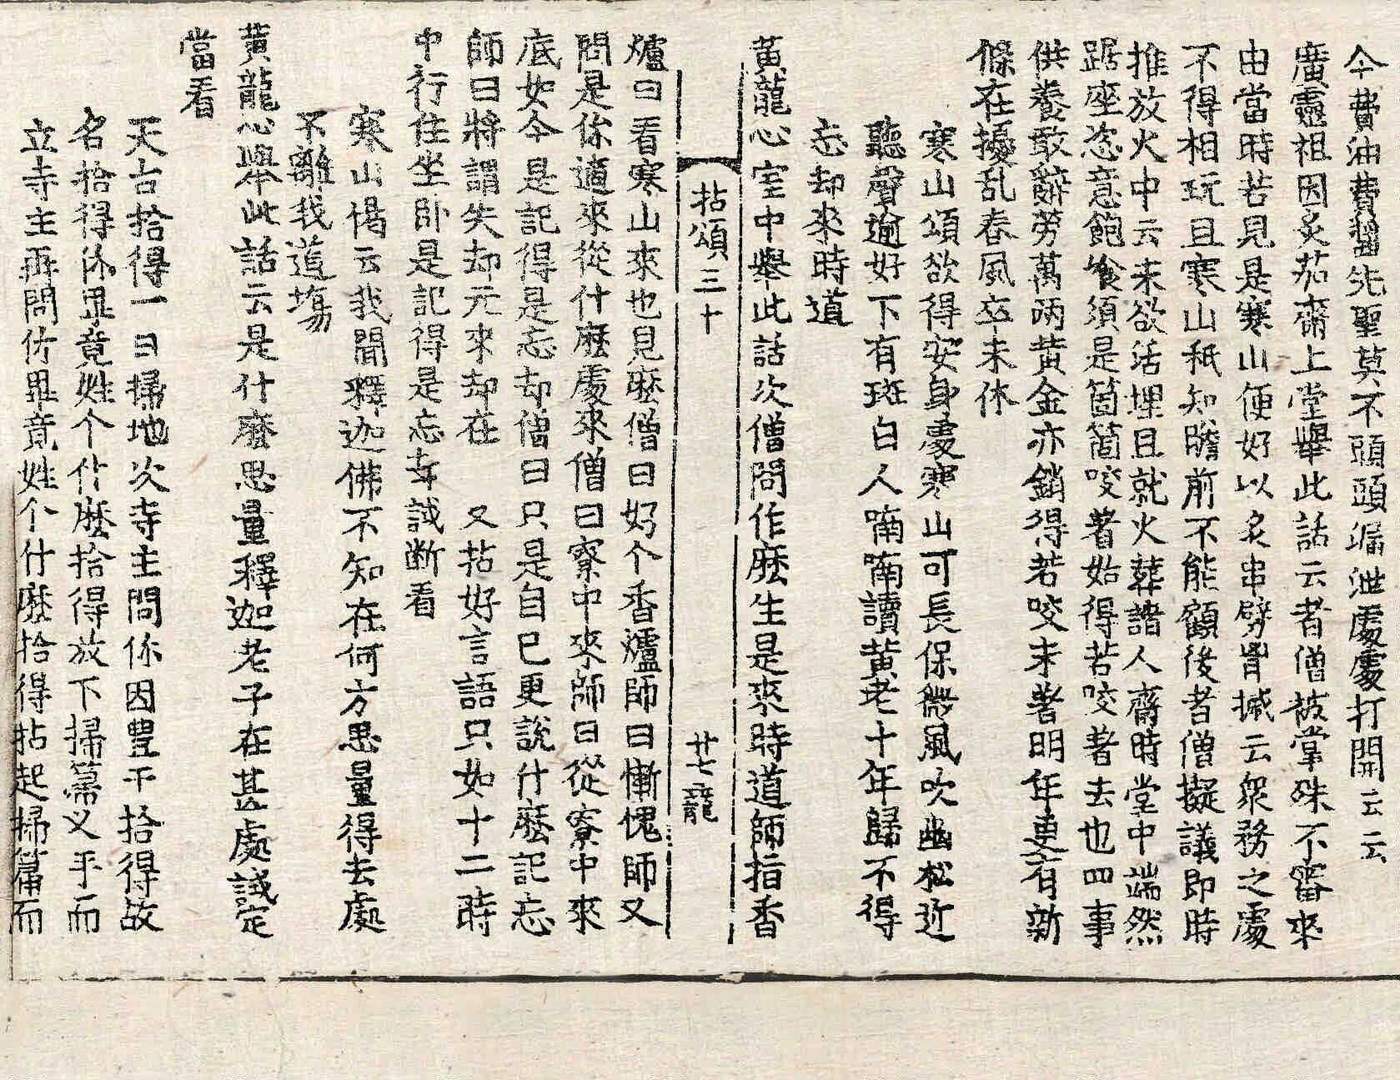 今費油費醬先聖莫不頭頭漏泄處處打開云云
廣靈祖因炙茄齋上堂擧此話云者僧被掌殊不審來
由當時若見是寒山便好以炙串劈胷摵云衆務之處
不得相玩且寒山秖知瞻前不能顧後者僧擬議即時
推放火中云未欲活埋且就火葬諸人齋時堂中端然
踞座恣意飽飡須是箇箇咬著始得若咬著去也四事
供養敢辭勞萬兩黃金亦銷得若咬未著明年更有新
條在擾乱春風卒未休
寒山頌欲得安身處寒山可長保微風吹幽松近
聽聲逾好下有斑白人喃喃讀黃老十年歸不得
忘却來時道
黃龍心室中擧此話次僧問作麽生是來時道師指香
拈頌三十 廿七 龍
爐曰看寒山來也見麽僧曰好个香爐師曰慚愧師又
問是你適來從什麽處來僧曰寮中來師曰從寮中來
底如今是記得是忘却僧曰只是自己更說什麽記忘
師曰將謂失却元來却在 又拈好言語只如十二時
中行住坐卧是記得是忘却試断看
寒山偈云我聞釋迦佛不知在何方思量得去處
不離我道塲
黃龍心擧此話云是什麽思量釋迦老子在甚處試定
當看
天台拾得一日掃地次寺主問你因豊干拾得故
名拾得你畢竟姓个什麽拾得放下掃箒叉手而
立寺主再問你畢竟姓个什麽拾得拈起掃箒而